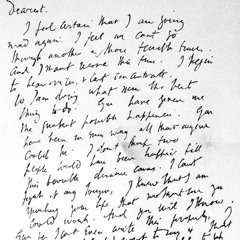 Dearest,
I feel certain that I am going
mad again. I feel we can't go
through another of those terrible times.
And I shan't recover this time. I begin
to hear voices, & can't concentrate.
So I am doing what seems the best
thing to do. You have given me
the greatest possible happiness. You
have been in every way all that anyone
could be. I don't think two
people could have been happier till
this terrible disease came. I can't
fight it any longer, I know that I am
spoiling your life, that without me you
could work. And you will I know.
You see I can't even write this properly. I